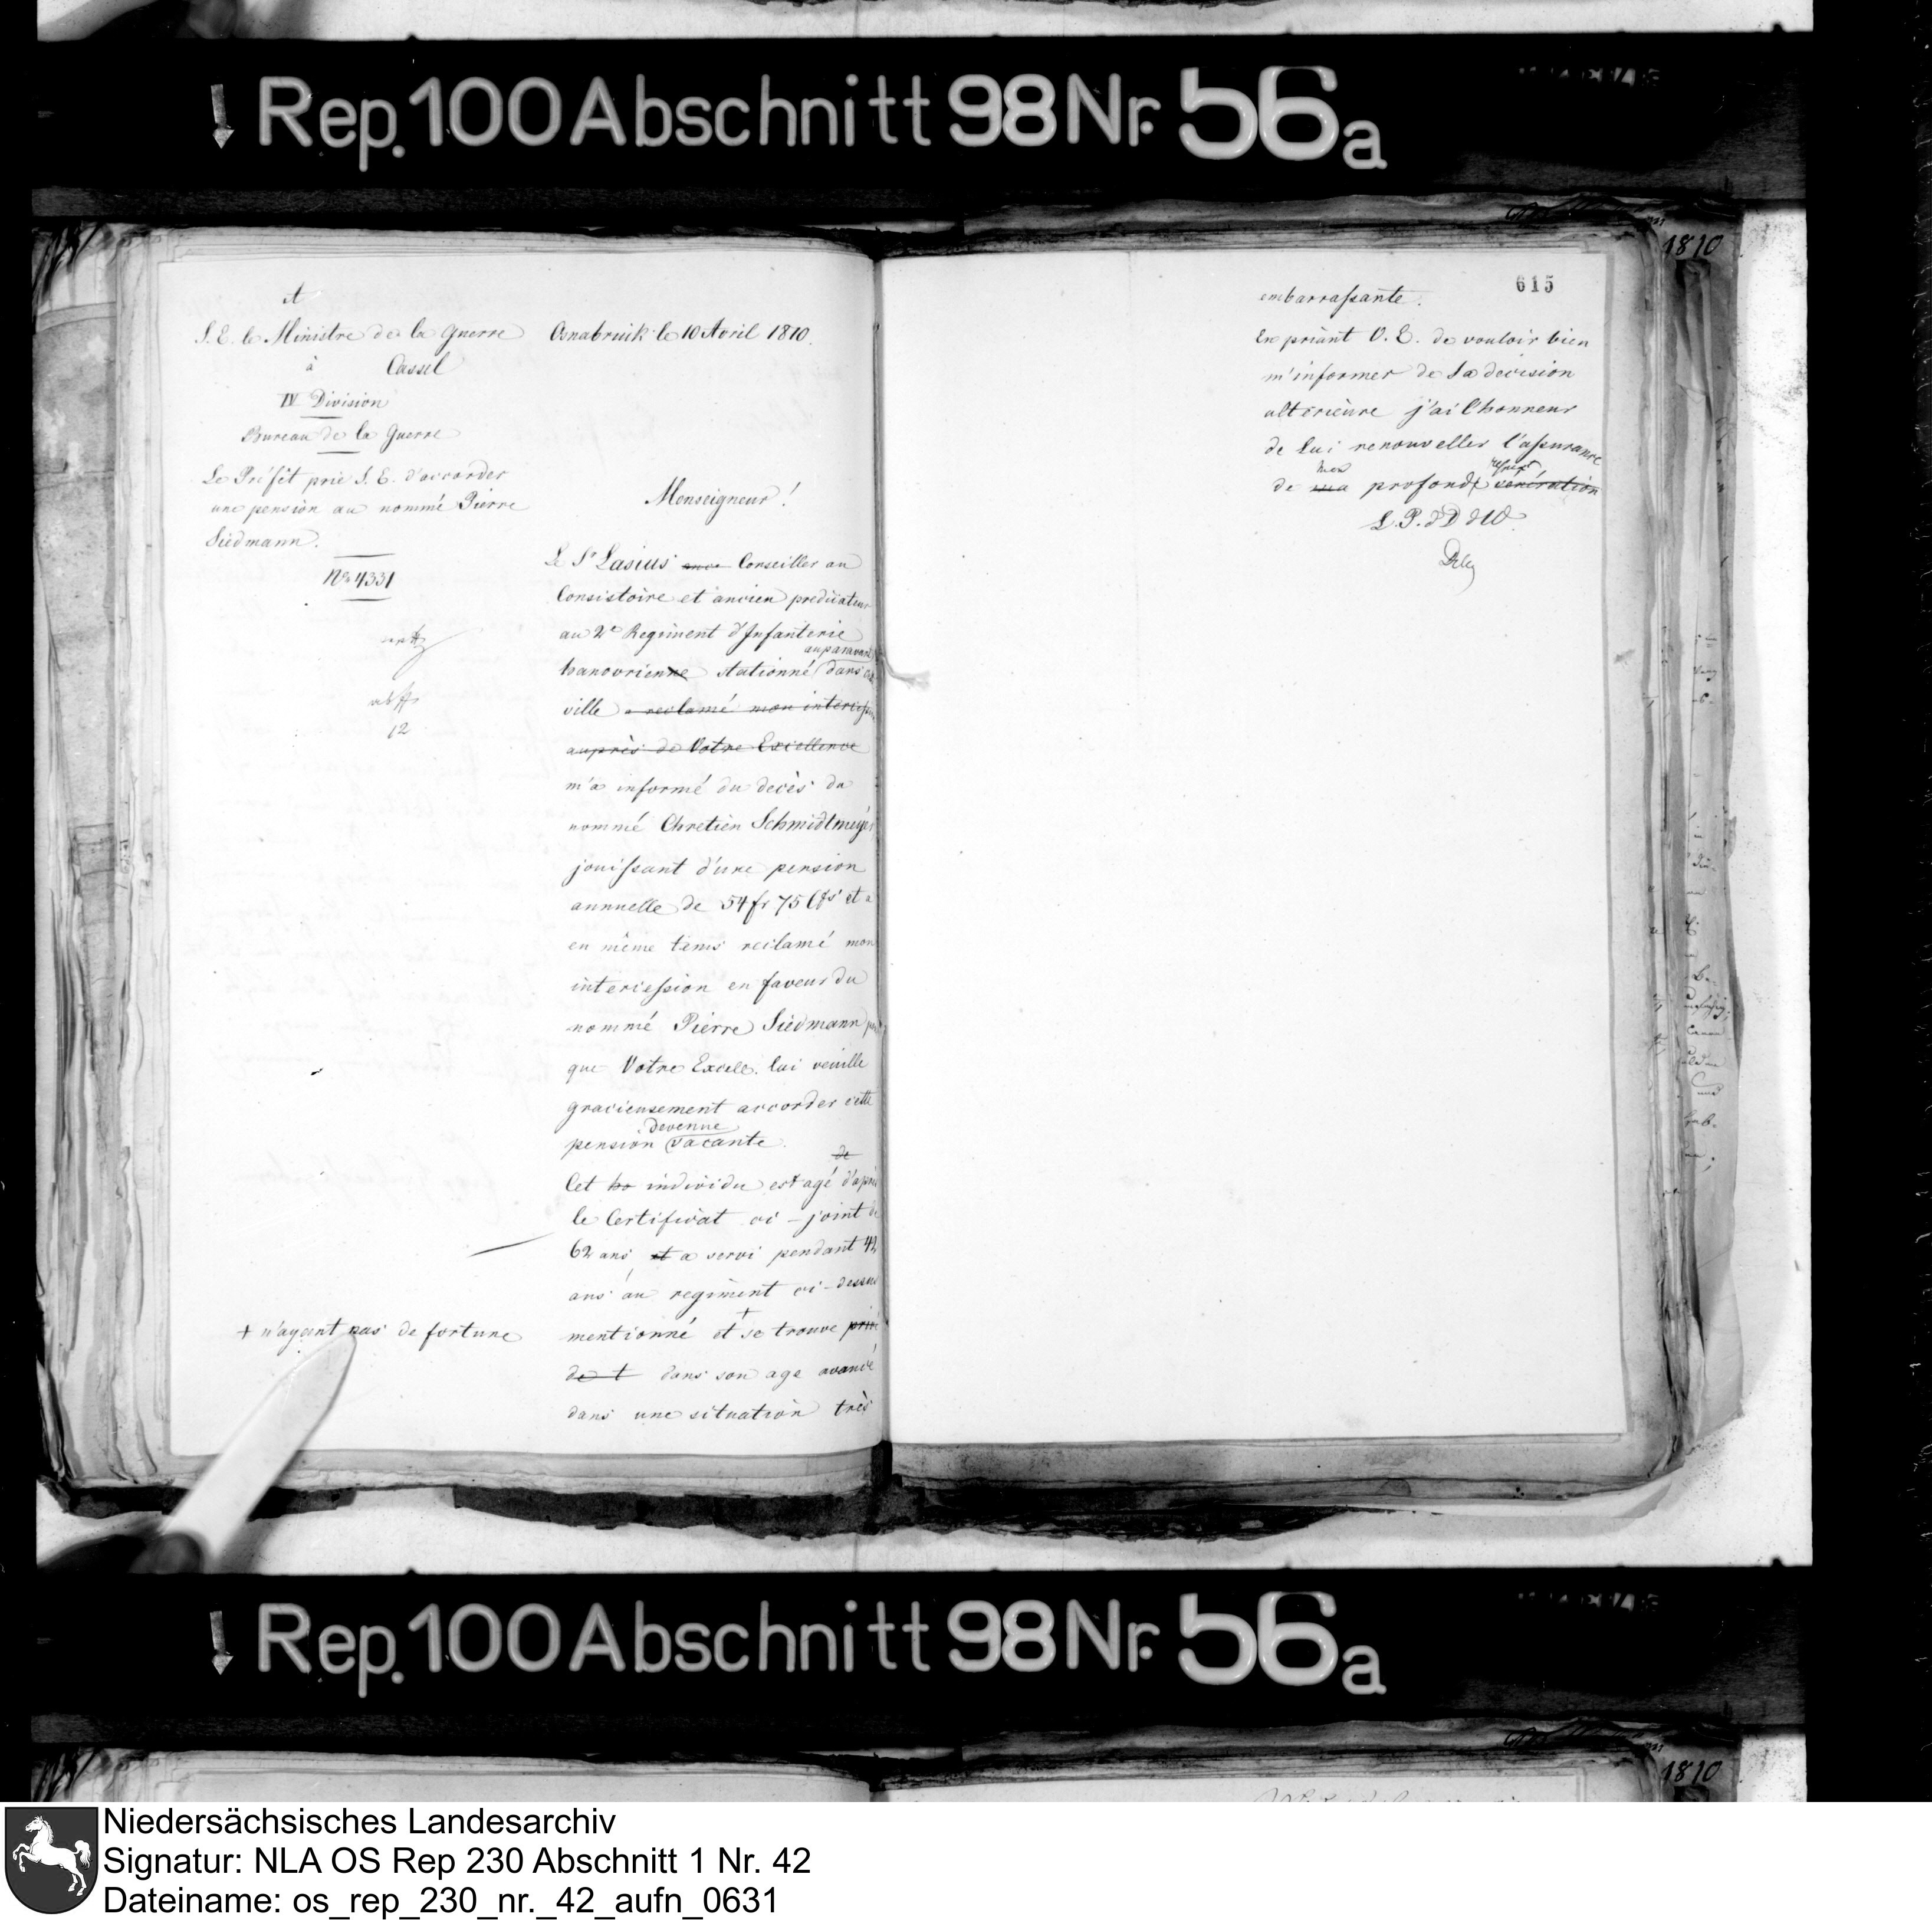 Rep. 100 Abschnitt 98 Nr. 56a
1810
A
S. E. le Ministre de la Guerre
à Cassel
IV Division
Bureau de la Guerre
Le Préfêt prie S. E. d'accorder
une pension au nommé Pierre
Siedmann.
No 4331
12
+ n'ayant pas de fortune
Osnabruck le 10 Avril 1810.
Monseigneur!
Le Sr Lasius Conseiller au
Consistoire et ancien predicateur
au 2e Regiment d'Infanterie
auparavant
hanovrienne stationné dans
ville a reclamé mon intercession
auprès de Votre Excellence
m'a informé du decès du
nommé Chretien Schmidtmeyer
jouissant d'une pension
annuelle de 54 fr 75 et a
en même tems reclamé mon
intercession en faveur du
nommé Pierre Siedmann
que Votre Excell. lui veuille
gracieusement accorder cette
devenue
pension vacante.
de
Cet ho individu est agé d'après
le Certificat ci-joint de
62 ans et a servi pendant 42
ans au regiment ci-dessus
+
mentionné et se trouve privé
de + dans son age avancé
dans une situation très
615
embarrassante.
En priant V. E. de vouloir bien
m'informer de Sa decision
ulterieure j'ai l'honneur
de lui renouveller l'assurance
mon respect
de ma profond veneration
L. P. d D d W.
Rep. 100 Abschnitt 98 Nr. 56a
1810
Niedersächsisches Landesarchiv
Signatur: NLA OS Rep 230 Abschnitt 1 Nr. 42
Dateiname: os_rep_230_nr._42_aufn_0631